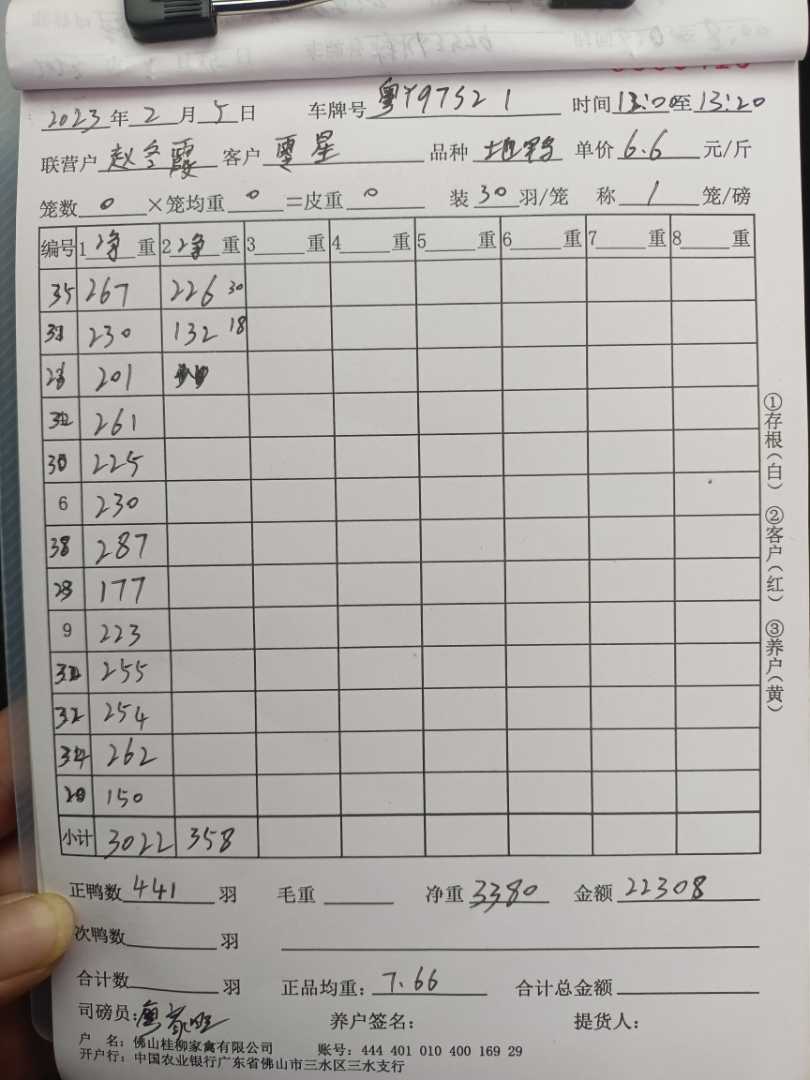 2023年2月5日 车牌号粤Y97521 时间13:00至13:20
联营户赵冬霞 客户 星 品种 土鸭 单价6.6元/斤
笼数0×笼均重0=皮重0 装30羽/笼 称1笼/磅
编号 1净重 2净重 3重 4重 5重 6重 7重 8重
35 267 226 30
230 132 18
201
261
30 225
6 230
38 287
23 177
9 223
255
32 254
34 262
20 150
小计 3022 358
正鸭数441羽 毛重 净重3380 金额22308
次鸭数 羽
合计数 羽 正品均重:7.66 合计总金额
司磅员: 养户签名: 提货人:
户 名:佛山桂柳家禽有限公司 账号:444 401 010 400 169 29
开户行:中国农业银行广东省佛山市三水区三水支行
①存根(白) ②客户(红) ③养户(黄)